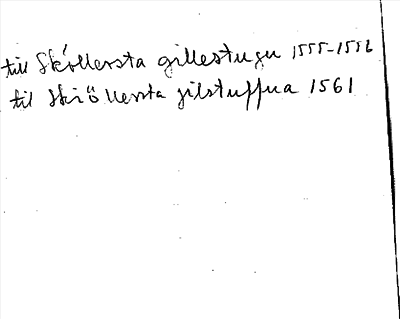 till Sköllersta gillestugu 1555-1556
til Skiöllersta gilstuffua 1561